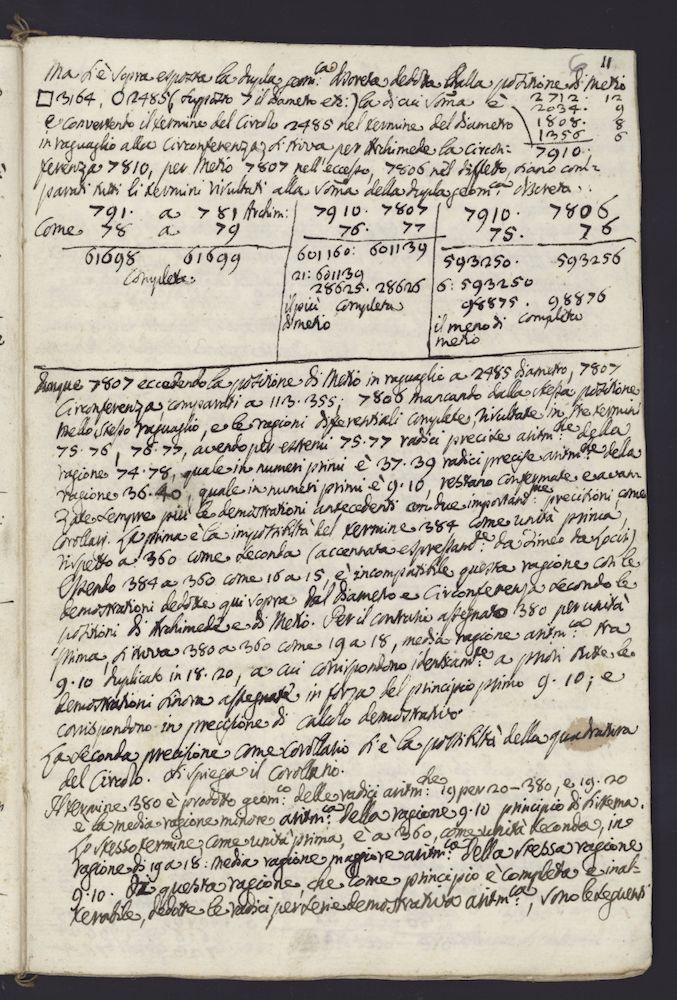 11
Ma si è sopra esposta la dupla geom:ca discreta dedotta dalla posizione di Metio
□ 3164, O 2485 (supposto 7 il Diametro etc:) la di cui soma è
2712. 12
2034. 9
1808. 8
1356 6
7910.
e convertendo il termine del Circolo 2485 nel termine del Diametro
in raguaglio alla Circonferenza, si trova per Archimede la Circon-
ferenza 7810, per Metio 7807 nell'eccesso, 7806 nel difetto, siano com-
parati tutti li termini risultati alla soma della dupla geom:ca discreta.
791. a 781 Archim:
Come 78 a 79
61698 61699
Completa:
7910. 7807
76. 77
601160: 601139
21: 601139
28625. 28626
il più completa
di metio
7910. 7806
75. 76
593250. 593256
6: 593250
98875. 98876
il meno di completa
metio
Dunque 7807 eccedendo la posizione di Metio in raguaglio a 2485 diametro, 7807
Circonferenza comparati a 113.355; 7806 mancando dalla stessa posizione
nello stesso raguaglio, e le ragioni differenziali complete, risultate in tre termini
75.76, 76.77, avendo per estremi 75.77 radici precise aritm:che della
ragione 74.78, quale in numeri primi è 37.39 radici precise aritm:che della
ragione 36.40, quale in numeri primi è 9.10, restano confermate e avan-
zate sempre più le demostrazioni antecedenti con due important:me precisioni come
Corollari. La prima è la impossibilità del termine 384 come unità prima,
rispetto a 360 come seconda (accennata espressam:te da Timeo da Locri)
Essendo 384 a 360 come 16 a 15, è incompatibile questa ragione con le
demostrazioni dedotte qui sopra dal Diametro e Circonferenza secondo le
posizioni di Archimede e di Metio. Per il contrario assegnato 380 per unità
prima, si trova 380 a 360 come 19 a 18, media ragione aritm:ca tra
9.10 duplicato in 18.20, a cui corrispondono identicam:te a priori tutte le
demostrazioni sinora assegnate in forza del principio primo 9.10; e
corrispondono in precisione di calcolo demostrativo.
La seconda precisione come Corollario si è la possibilità della quadratura
del Circolo. Si spiega il Corollario.
Il termine 380 è prodotto geom:co delle radici aritm:che 19 per 20 - 380, e 19.20
è la media ragione minore aritm:ca della ragione 9.10 principio di sistema.
Lo stesso termine come unità prima, è a 360, come unità seconda, in
ragione di 19 a 18: media ragione maggiore aritm:ca della stessa ragione
9.10. Da questa ragione, che come principio è completa e inal-
terabile, dedotte le radici per serie demostrativa aritm:ca, sono le seguenti